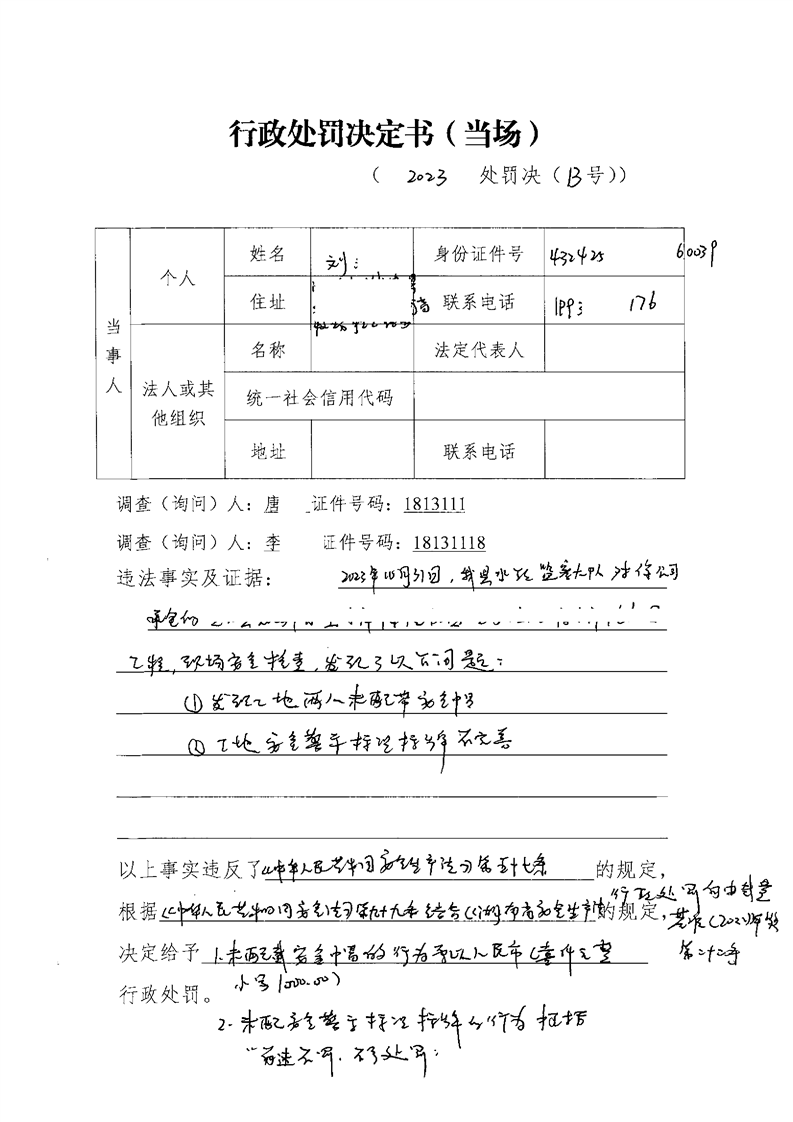 行政处罚决定书（当场）
（ 2023 处罚决（13号））
当事人
个人
姓名 刘 身份证件号 432425 60039
住址 联系电话 1993 176
法人或其他组织
名称 法定代表人
统一社会信用代码
地址 联系电话
调查（询问）人：唐 证件号码：1813111
调查（询问）人：李 证件号码：18131118
违法事实及证据： 2023年10月31日，我县水政监察大队对你公司
工程，现场安全检查，发现了以下问题：
①发现工地两人未配带安全帽
②工地安全警示标识标牌不完善
以上事实违反了《中华人民共和国安全生产法》第五十七条 的规定，
根据《中华人民共和国安全法》第九十九条结合《湖南省安全生产 的规定，
行政处罚自由裁量
基准(2021)年版
第二十二条
决定给予 1.未配戴安全帽的行为予以人民币(壹仟元整
小写1000.00)
行政处罚。
2.未配安全警示标识标牌的行为
不罚，不予处罚；